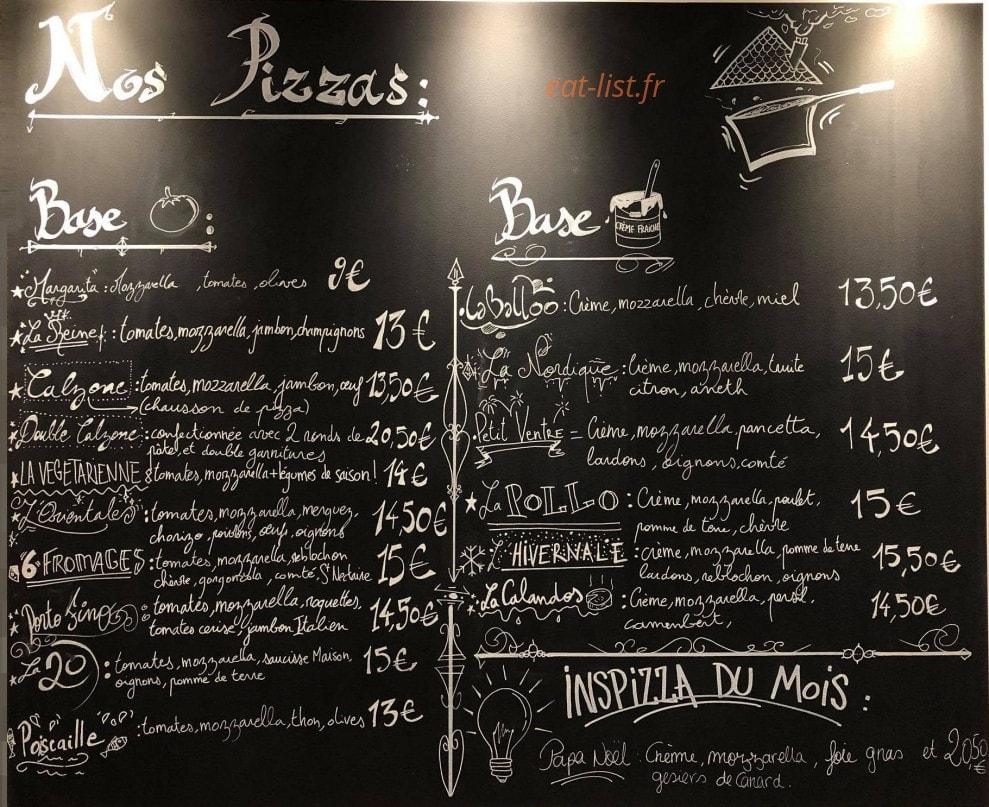 Nos Pizzas:
eat-list.fr
Base :
Margarita : Mozzarella , tomates , olives 9€
La Reine : tomates, mozzarella, jambon, champignons 13€
Calzone : tomates, mozzarella, jambon, œuf 13,50€
(chausson de pizza)
Double Calzone : confectionnée avec 2 ronds de 20,50€
pâte, et double garnitures
LA VEGETARIENNE : tomates, mozzarella + légumes de saison ! 14€
L'Orientale : tomates, mozzarella, merguez, 14,50€
chorizo, poivrons, œufs, oignons
6 FROMAGES : tomates, mozzarella, reblochon 15€
chèvre, gorgonzola, comté, St Nectaire
Porto Zino : tomates, mozzarella, roquettes, 14,50€
tomates cerise, jambon Italien
La 20 : tomates, mozzarella, saucisse Maison 15€
oignons, pomme de terre
Poiscaille : tomates, mozzarella, thon, olives 13€
Base
CRÈME FRAICHE
: Crème, mozzarella, chèvre, miel 13,50€
La Nordique : Crème, mozzarella, truite 15€
citron, aneth
Petit Ventre = Crème, mozzarella, pancetta, 14,50€
lardons, oignons, comté
La POLLO : Crème, mozzarella, poulet, 15€
pomme de terre, chèvre
L'HIVERNALE : crème, mozzarella, pomme de terre 15,50€
lardons, reblochon, oignons
La Calandos : Crème, mozzarella, persil, 14,50€
camembert,
INSPIZZA DU MOIS :
Papa Noël : Crème, mozzarella, foie gras et 20,50€
gesiers de Canard.